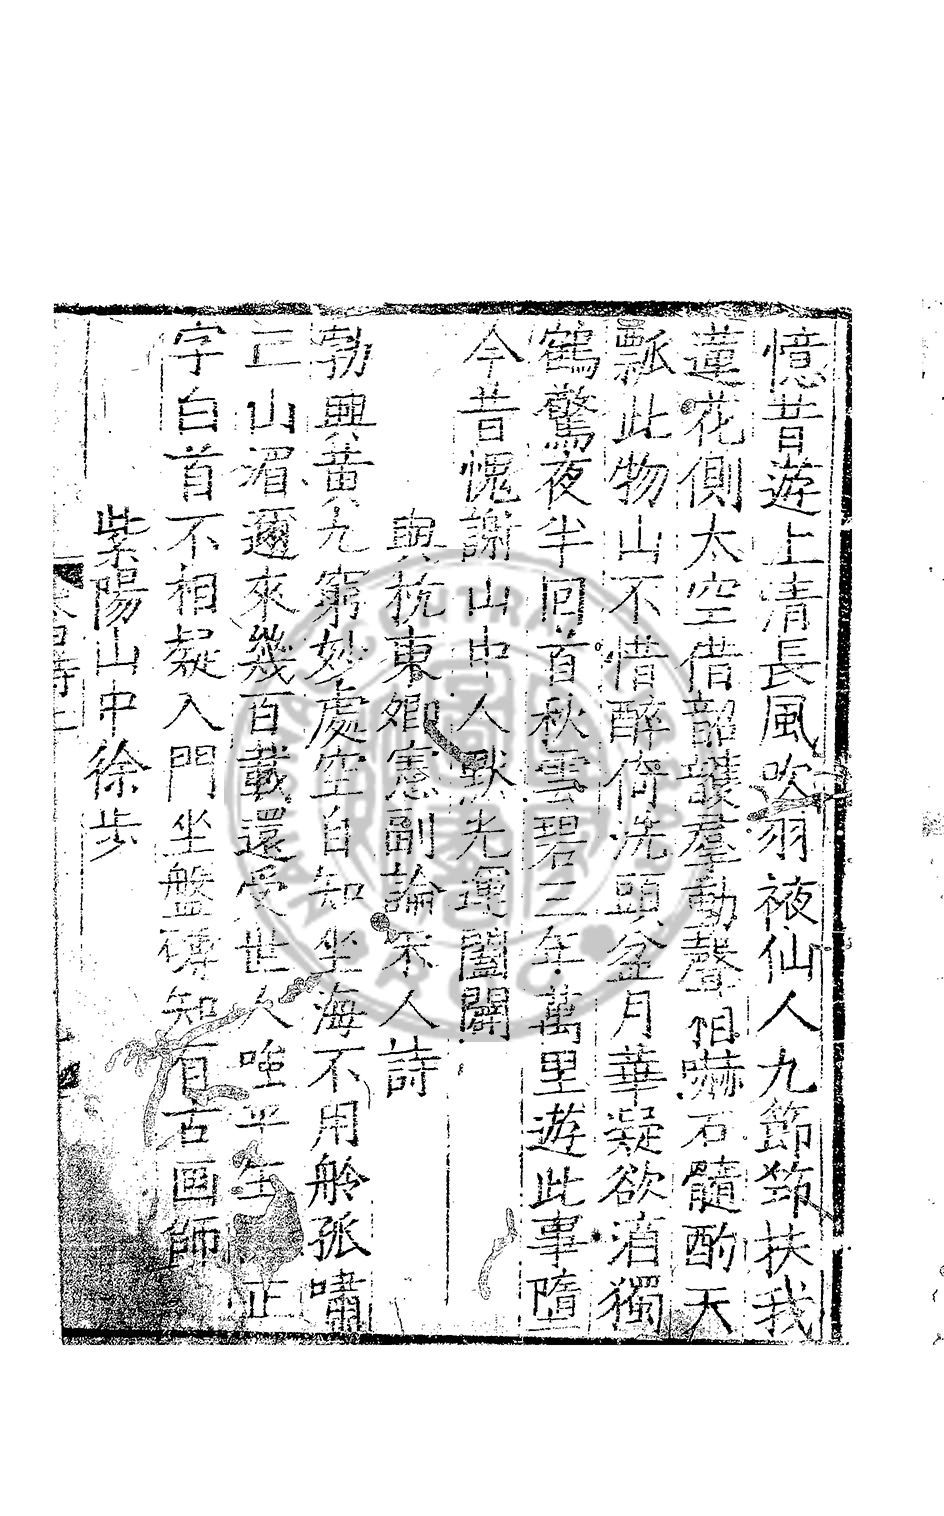 憶昔遊上清長風吹羽袯仙人九節筇扶我
蓮花側太空借韶頀羣動聲相嚇石髓酌天
瓢此物山不惜醉倚洗頭盆月華凝欲滴獨
鶴驚夜半回首秋雲碧三年萬里遊此事墮
今昔愧謝山中人默光運闔闢
與杭東卿憲副論禾人詩
勃興黄九窮妙處空自知坐海不用舲孤嘯
二山湄邇來幾百載還受世人平生正
字白首不相疑入門坐盤礡知有古画師
紫陽山中徐步